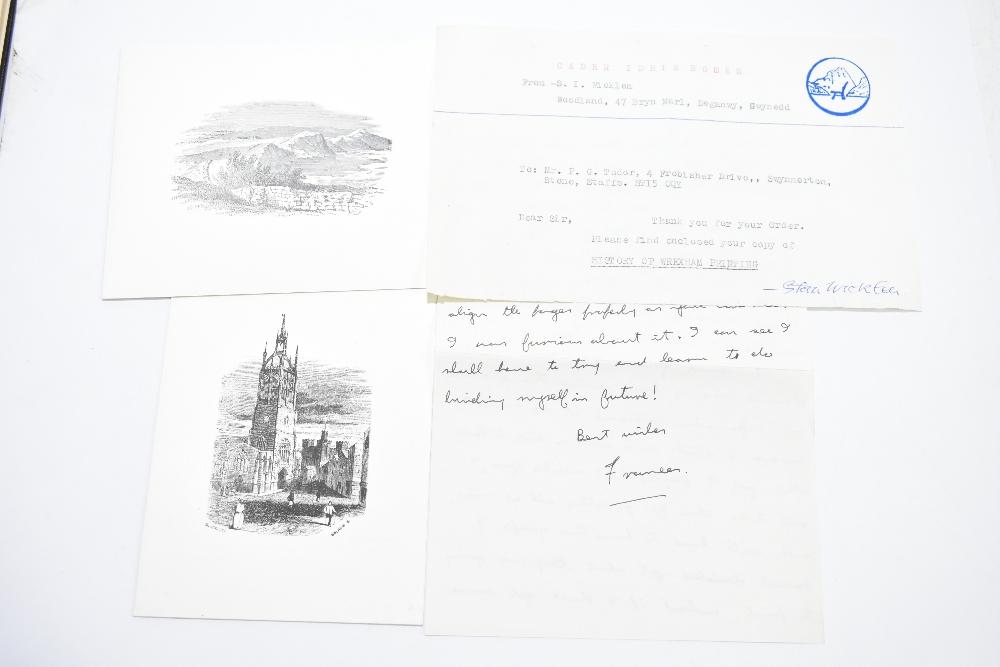 CADER IDRIS
From -S. I. Wicklen
Woodland, 47 Bryn Marl, Deganwy, Gwynedd
To: Mr. P. G. Tudor, 4 Frobisher Drive,, Swynnerton,
Stone, Staffs. ST15 0QY
Dear Sir, Thank you for your Order.
Please find enclosed your copy of
HISTORY OF WREXHAM PRINTING
— Stan Wicklen
align the pages properly as
I was furious about it. I can see I
shall have to try and learn to do
binding myself in future!
Best wishes
Frances.